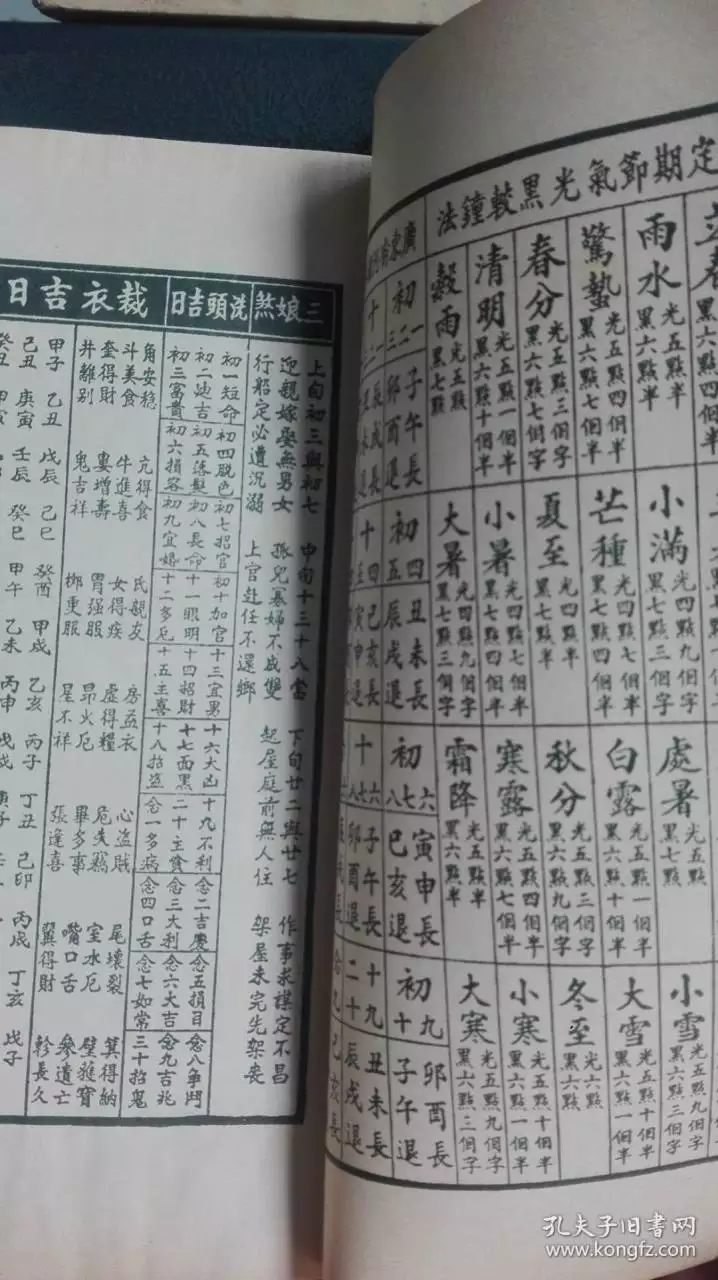 定期節氣光黑較鐘法
雨水 光五點半 黑六點半
驚蟄 光五點四個半 黑六點七個半
春分 光五點三個字 黑六點七個字
清明 光五點一個半 黑六點十個半
穀雨 光五點 黑七點
小滿 光四點九個字 黑七點三個字
芒種 光四點七個半 黑七點四個半
夏至 光四點半 黑七點半
小暑 光四點七個半 黑七點四個半
大暑 光四點九個字 黑七點三個字
處暑 光五點 黑七點
白露 光五點一個半 黑六點十個半
秋分 光五點三個字 黑六點九個字
寒露 光五點四個半 黑六點七個半
霜降 光五點半 黑六點半
小雪 光五點九個字 黑六點三個字
大雪 光五點十個半 黑六點一個半
冬至 光六點 黑六點
小寒 光五點十個半 黑六點一個半
大寒 光五點九個字 黑六點三個字
初一二三 子午長 卯酉退
初四五 丑未長 辰戌退
初六七八 寅申長 巳亥退
初九十 卯酉長 子午退
三娘煞
上旬初三與初七 申旬十三十八當 下旬廿二與廿七 作事求謀定不昌
迎親嫁娶無男女 孤兒寡婦不成雙 起屋庭前無人住 架屋未完先架丧
行船定必遭沉溺 上官赴任不還鄉
洗頭吉日
初一短命 初二进吉 初三富貴
初四脱色 初五落髮 初六損容
初七招官 初八長命 初九宜婚
初十加官 十一眼明 十二多厄
十三宜男 十四招財 十五主喜
十六大凶 十七面黑 十八招盜
十九不利 二十主貧 念一多病
念二吉慶 念三大利 念四口舌
念五損目 念六大吉 念七如常
念八争鬥 念九吉兆 三十招鬼
裁衣吉日
角安穩 亢得食 氐親友 房益衣 心盜賊 尾壞裂 箕得納
斗美食 牛進喜 女得疾 虛得糧 危失竊 室水厄 壁獲寶
奎得財 婁增壽 胃强服 昴火厄 畢多事 嘴口舌 參遺亡
井離别 鬼吉祥 柳重服 星不祥 張逢喜 翼得財 軫長久
甲子 乙丑 戊辰 己巳 癸酉 甲戌 乙亥 丙子 丁丑 己卯 丙戌 丁亥 戊子
己丑 庚寅 壬辰 癸巳 甲午 乙未 丙申
孔夫子旧书网
www.kongfz.com